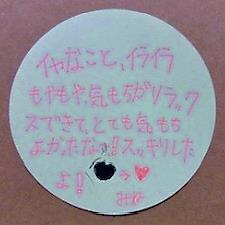 イヤなこと、イライラ
もやもや、気もちがリラック
スできて、とても気もち
よかったなっ!スッキリした
よ! ♥
みね